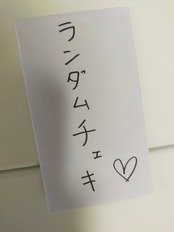 ランダムチェキ♡